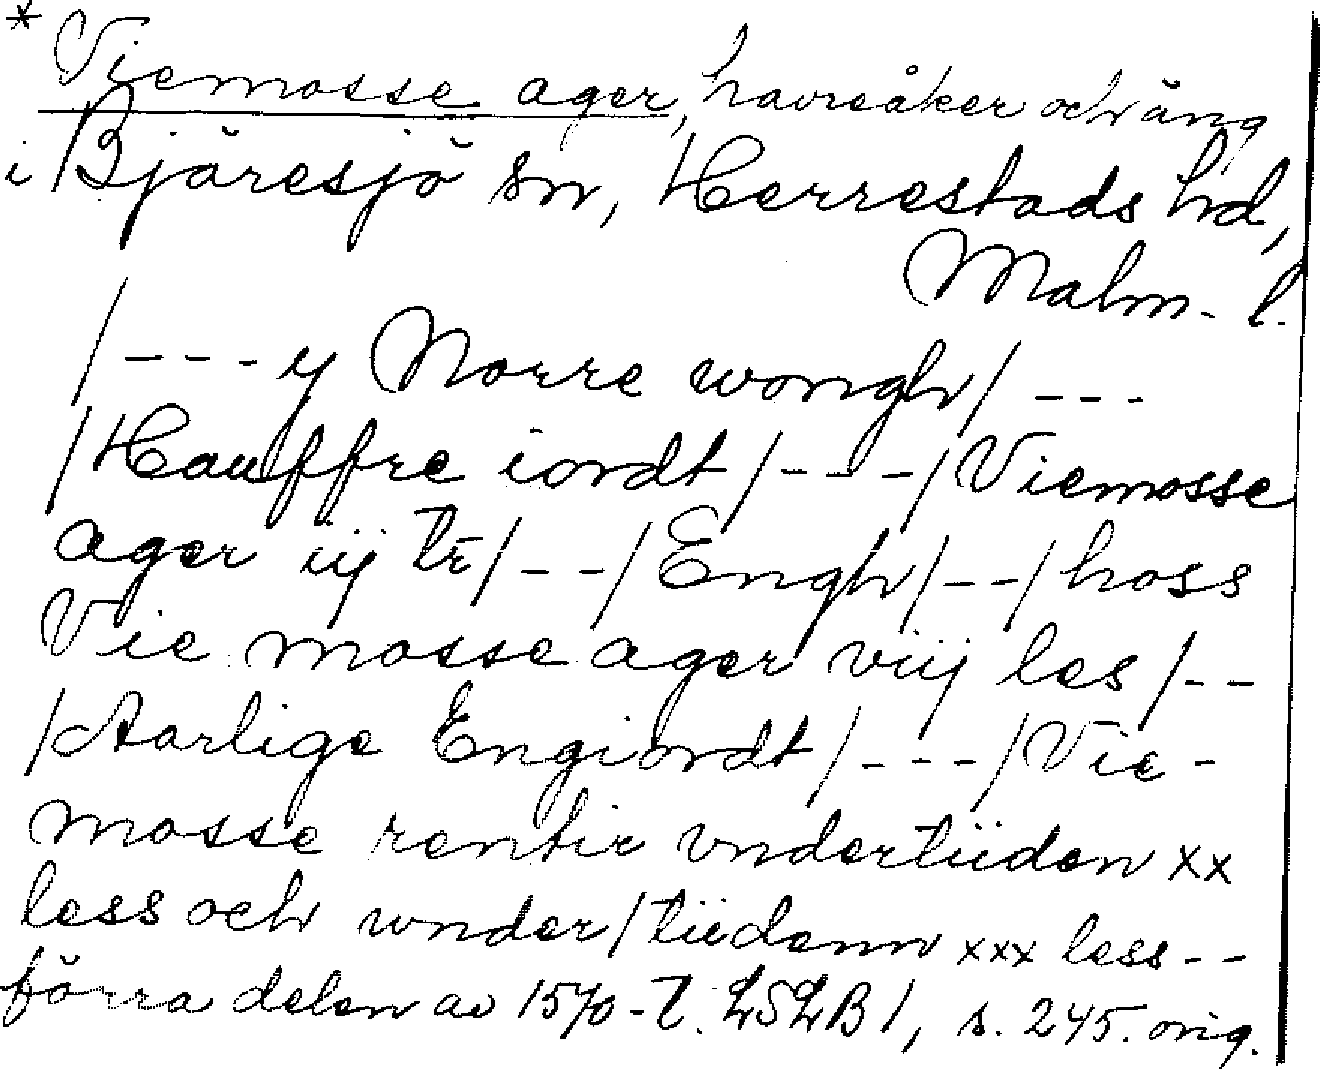 * Viemosse ager, havreåker och äng
i Bjäresjö sn, Herrestads hd,
Malm. l.
/---y Norre wongh/---
/Hauffre iordt/---/Viemosse
ager iij tr̄/--/Engh/--/hoss
Vie mosse ager viij les/--
/Aarlige Engiordt/---/Vie-
mosse rentir vndertiiden xx
less och wnder/tiidenn xxx less--
förra delen av 1570-t. LSLB 1, s. 245. orig.